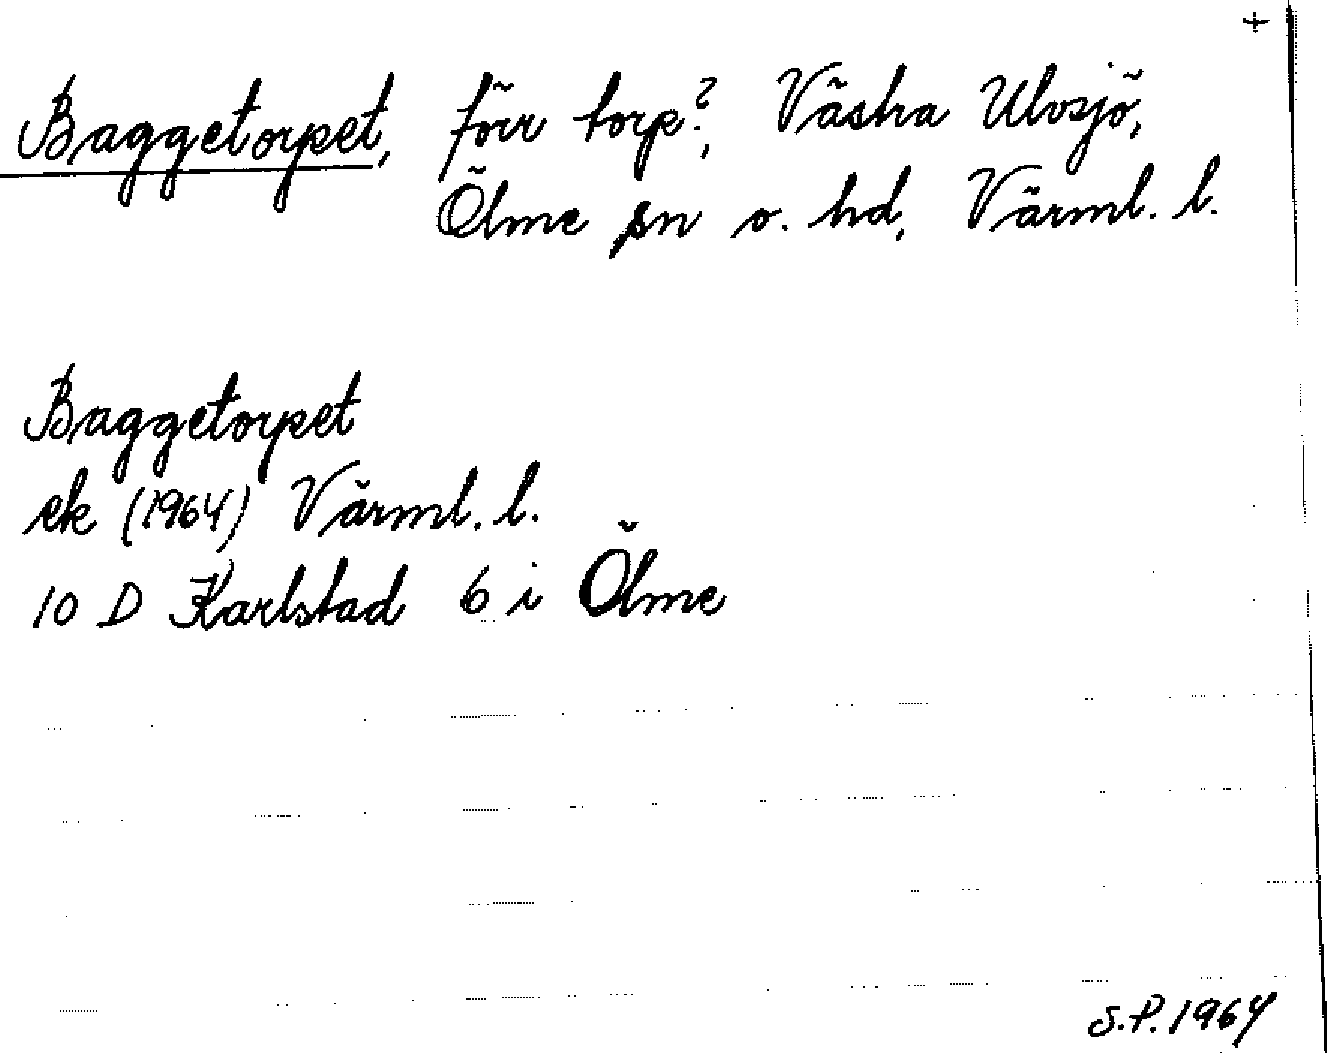 +
Baggetorpet, förr torp?, Västra Ulvsjö,
Ölme sn o. hd, Värml. l.
Baggetorpet
ek (1964) Värml. l.
10 D Karlstad 6 i Ölme
S.P. 1964